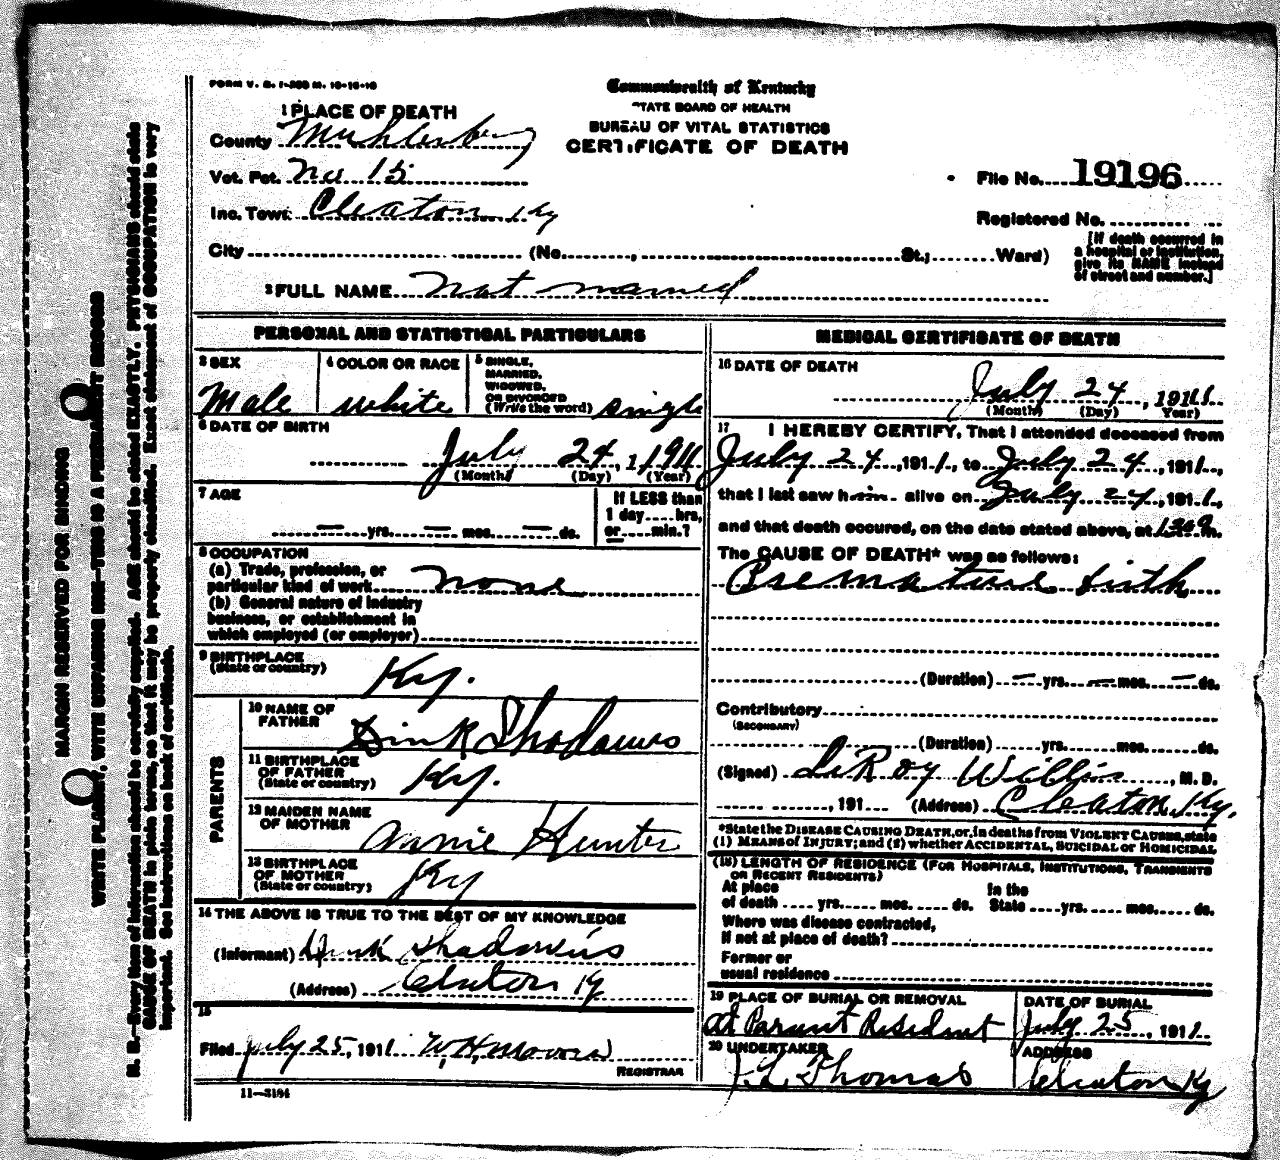 FORM V. S. 1-
Commonwealth of Kentucky
STATE BOARD OF HEALTH
BUREAU OF VITAL STATISTICS
CERTIFICATE OF DEATH
1 PLACE OF DEATH
County Muhlenberg
Vot. Pct. No 15
Inc. Town Cleaton Ky
City (No. , St.; Ward)
File No. 19196
Registered No.
[If death occurred in
a hospital or institution,
give its NAME instead
of street and number.]
2 FULL NAME Not named
PERSONAL AND STATISTICAL PARTICULARS
3 SEX
Male
4 COLOR OR RACE
white
5 SINGLE,
MARRIED,
WIDOWED,
OR DIVORCED
(Write the word) single
6 DATE OF BIRTH
July 24, 1911
(Month) (Day) (Year)
7 AGE
— yrs. — mos. — ds.
If LESS than
1 day hrs,
or min.?
8 OCCUPATION
(a) Trade, profession, or
particular kind of work none
(b) General nature of industry
business, or establishment in
which employed (or employer)
9 BIRTHPLACE
(State or country) Ky.
PARENTS
10 NAME OF
FATHER Dink Shadowns
11 BIRTHPLACE
OF FATHER
(State or country) Ky.
12 MAIDEN NAME
OF MOTHER Annie Hunter
13 BIRTHPLACE
OF MOTHER
(State or country) Ky
14 THE ABOVE IS TRUE TO THE BEST OF MY KNOWLEDGE
(Informant) Dink
(Address) Cleaton Ky
15
Filed July 25, 1911 W.H.
REGISTRAR
11—3184
MEDICAL CERTIFICATE OF DEATH
16 DATE OF DEATH
July 24, 1911
(Month) (Day) Year)
17 I HEREBY CERTIFY, That I attended deceased from
July 24, 1911, to July 24, 1911,
that I last saw him alive on July 24, 1911,
and that death occured, on the date stated above, at m.
The CAUSE OF DEATH* was as follows:
Premature birth
(Duration) — yrs. — mos. — ds.
Contributory
(SECONDARY)
(Duration) yrs. mos. ds.
(Signed) LeRoy Willis, M. D.
, 191 (Address) Cleaton, Ky.
*State the DISEASE CAUSING DEATH, or, in deaths from VIOLENT CAUSES, state
(1) MEANS OF INJURY; and (2) whether ACCIDENTAL, SUICIDAL or HOMICIDAL
(18) LENGTH OF RESIDENCE (FOR HOSPITALS, INSTITUTIONS, TRANSIENTS
OR RECENT RESIDENTS)
At place In the
of death yrs. mos. ds. State yrs. mos. ds.
Where was disease contracted,
if not at place of death?
Former or
usual residence
19 PLACE OF BURIAL OR REMOVAL
at Parunt Resident
DATE OF BURIAL
July 25, 1911.
20 UNDERTAKER
J. L. Thomas
ADDRESS
Cleaton Ky
MARGIN RESERVED FOR BINDING
WRITE PLAINLY, WITH UNFADING INK—THIS IS A PERMANENT RECORD
N. B.—Every item of information should be carefully supplied. AGE should be stated EXACTLY. PHYSICIANS should state
CAUSE OF DEATH in plain terms, so that it may be properly classified. Exact statement of OCCUPATION is very
important. See instructions on back of certificate.